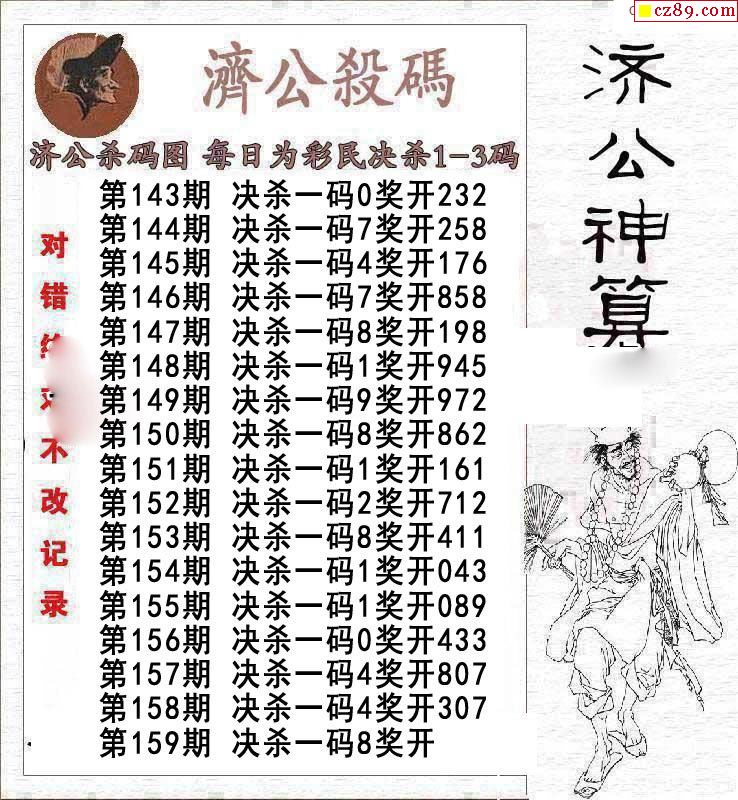 cz89.com
濟公殺碼
济公杀码图 每日为彩民决杀1-3码
第143期 决杀一码0奖开232
第144期 决杀一码7奖开258
第145期 决杀一码4奖开176
第146期 决杀一码7奖开858
第147期 决杀一码8奖开198
第148期 决杀一码1奖开945
第149期 决杀一码9奖开972
第150期 决杀一码8奖开862
第151期 决杀一码1奖开161
第152期 决杀一码2奖开712
第153期 决杀一码8奖开411
第154期 决杀一码1奖开043
第155期 决杀一码1奖开089
第156期 决杀一码0奖开433
第157期 决杀一码4奖开807
第158期 决杀一码4奖开307
第159期 决杀一码8奖开
对错
不改记录
济公神算